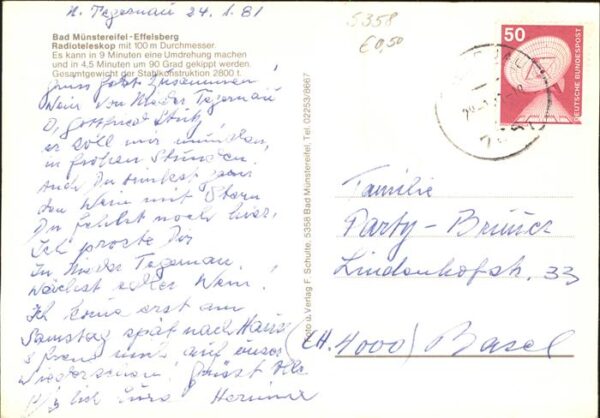 N. Tegernau 24.1.81
5358
€0,50
Bad Münstereifel-Effelsberg
Radioteleskop mit 100 m Durchmesser.
Es kann in 9 Minuten eine Umdrehung machen
und in 4,5 Minuten um 90 Grad gekippt werden.
Gesamtgewicht der Stahlkonstruktion 2800 t.
zusammen!
Wein von Nieder Tegernau
O, Gottfried Stutz,
er soll mir munden,
in frohen Stunden.
Auch Du trinkst gern
den Wein mit Stern
Du fehlst noch hier,
Ich proste Dir
In Nieder Tegernau,
wächst edler Wein!
Ich komme erst am
Samstag spät nach Hause
& freue mich auf unser
Wiedersehen! Grüsst
Hermine
Foto u. Verlag F. Schulte, 5358 Bad Münstereifel, Tel. 02253/8667
50
DEUTSCHE BUNDESPOST
Familie
Party-Brunner
Lindenhofstr. 33
(CH. 4000) Basel